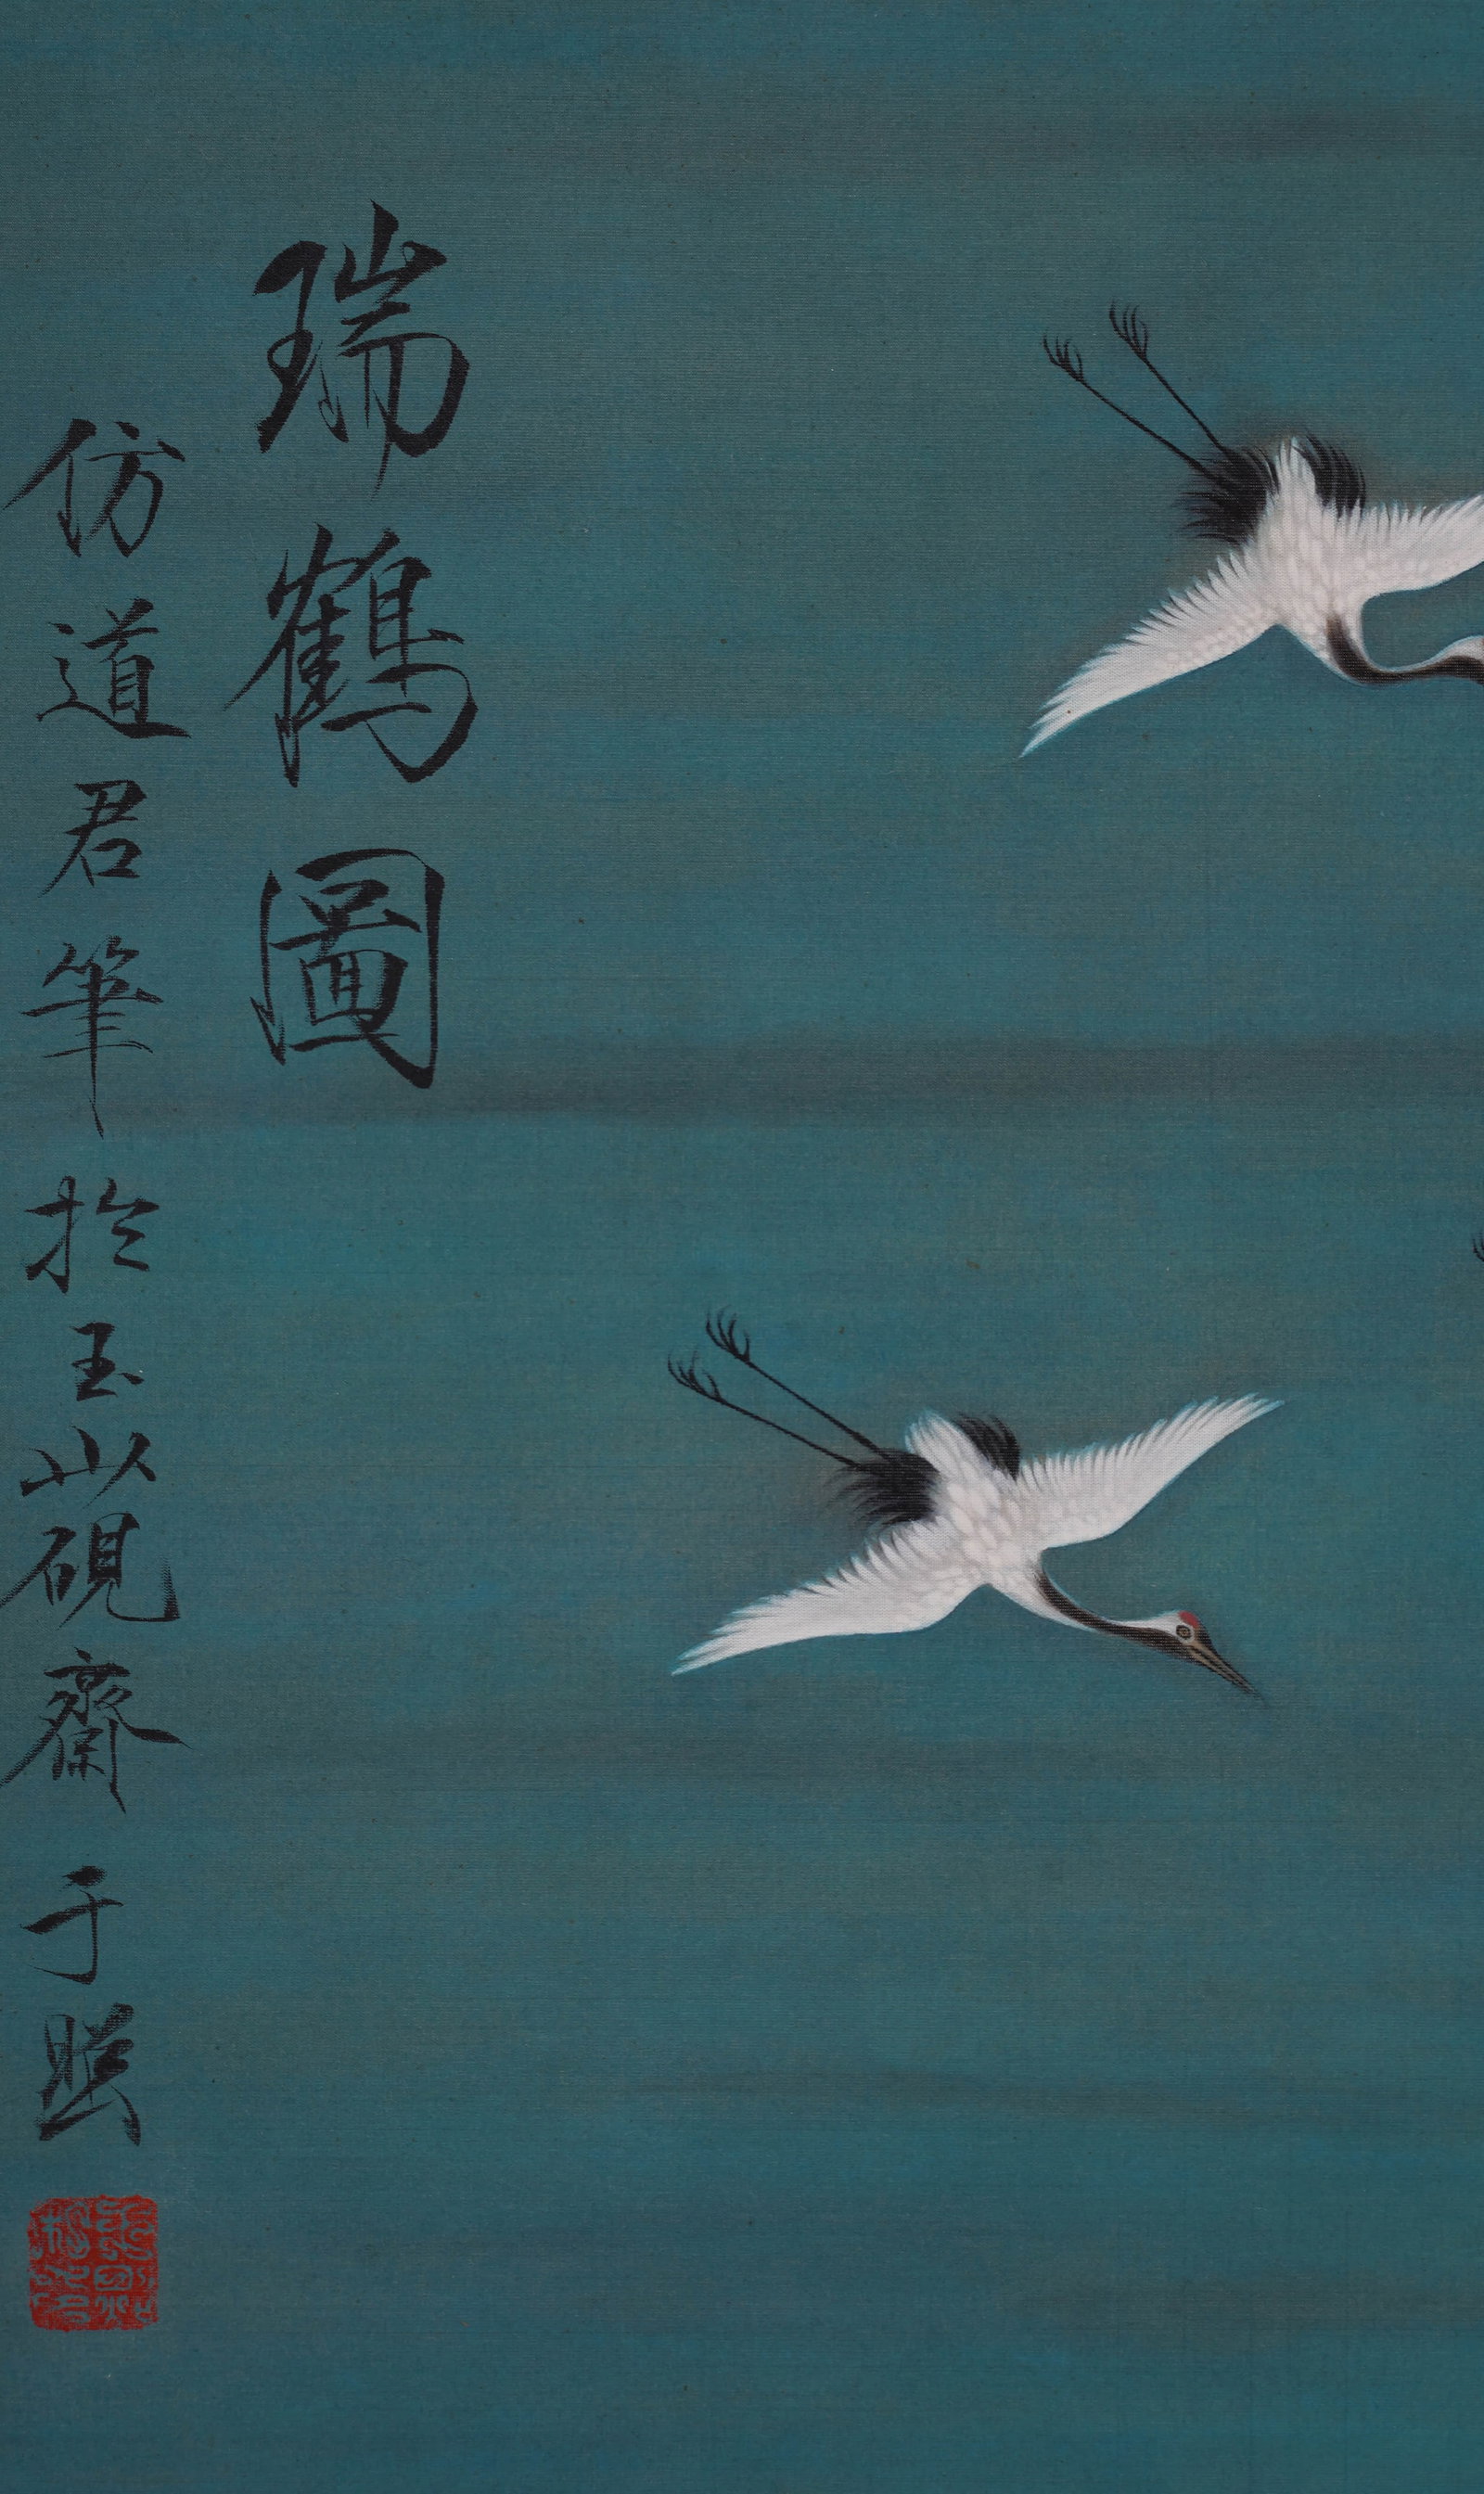 瑞鶴圖
仿道君筆於玉山硯齋于照